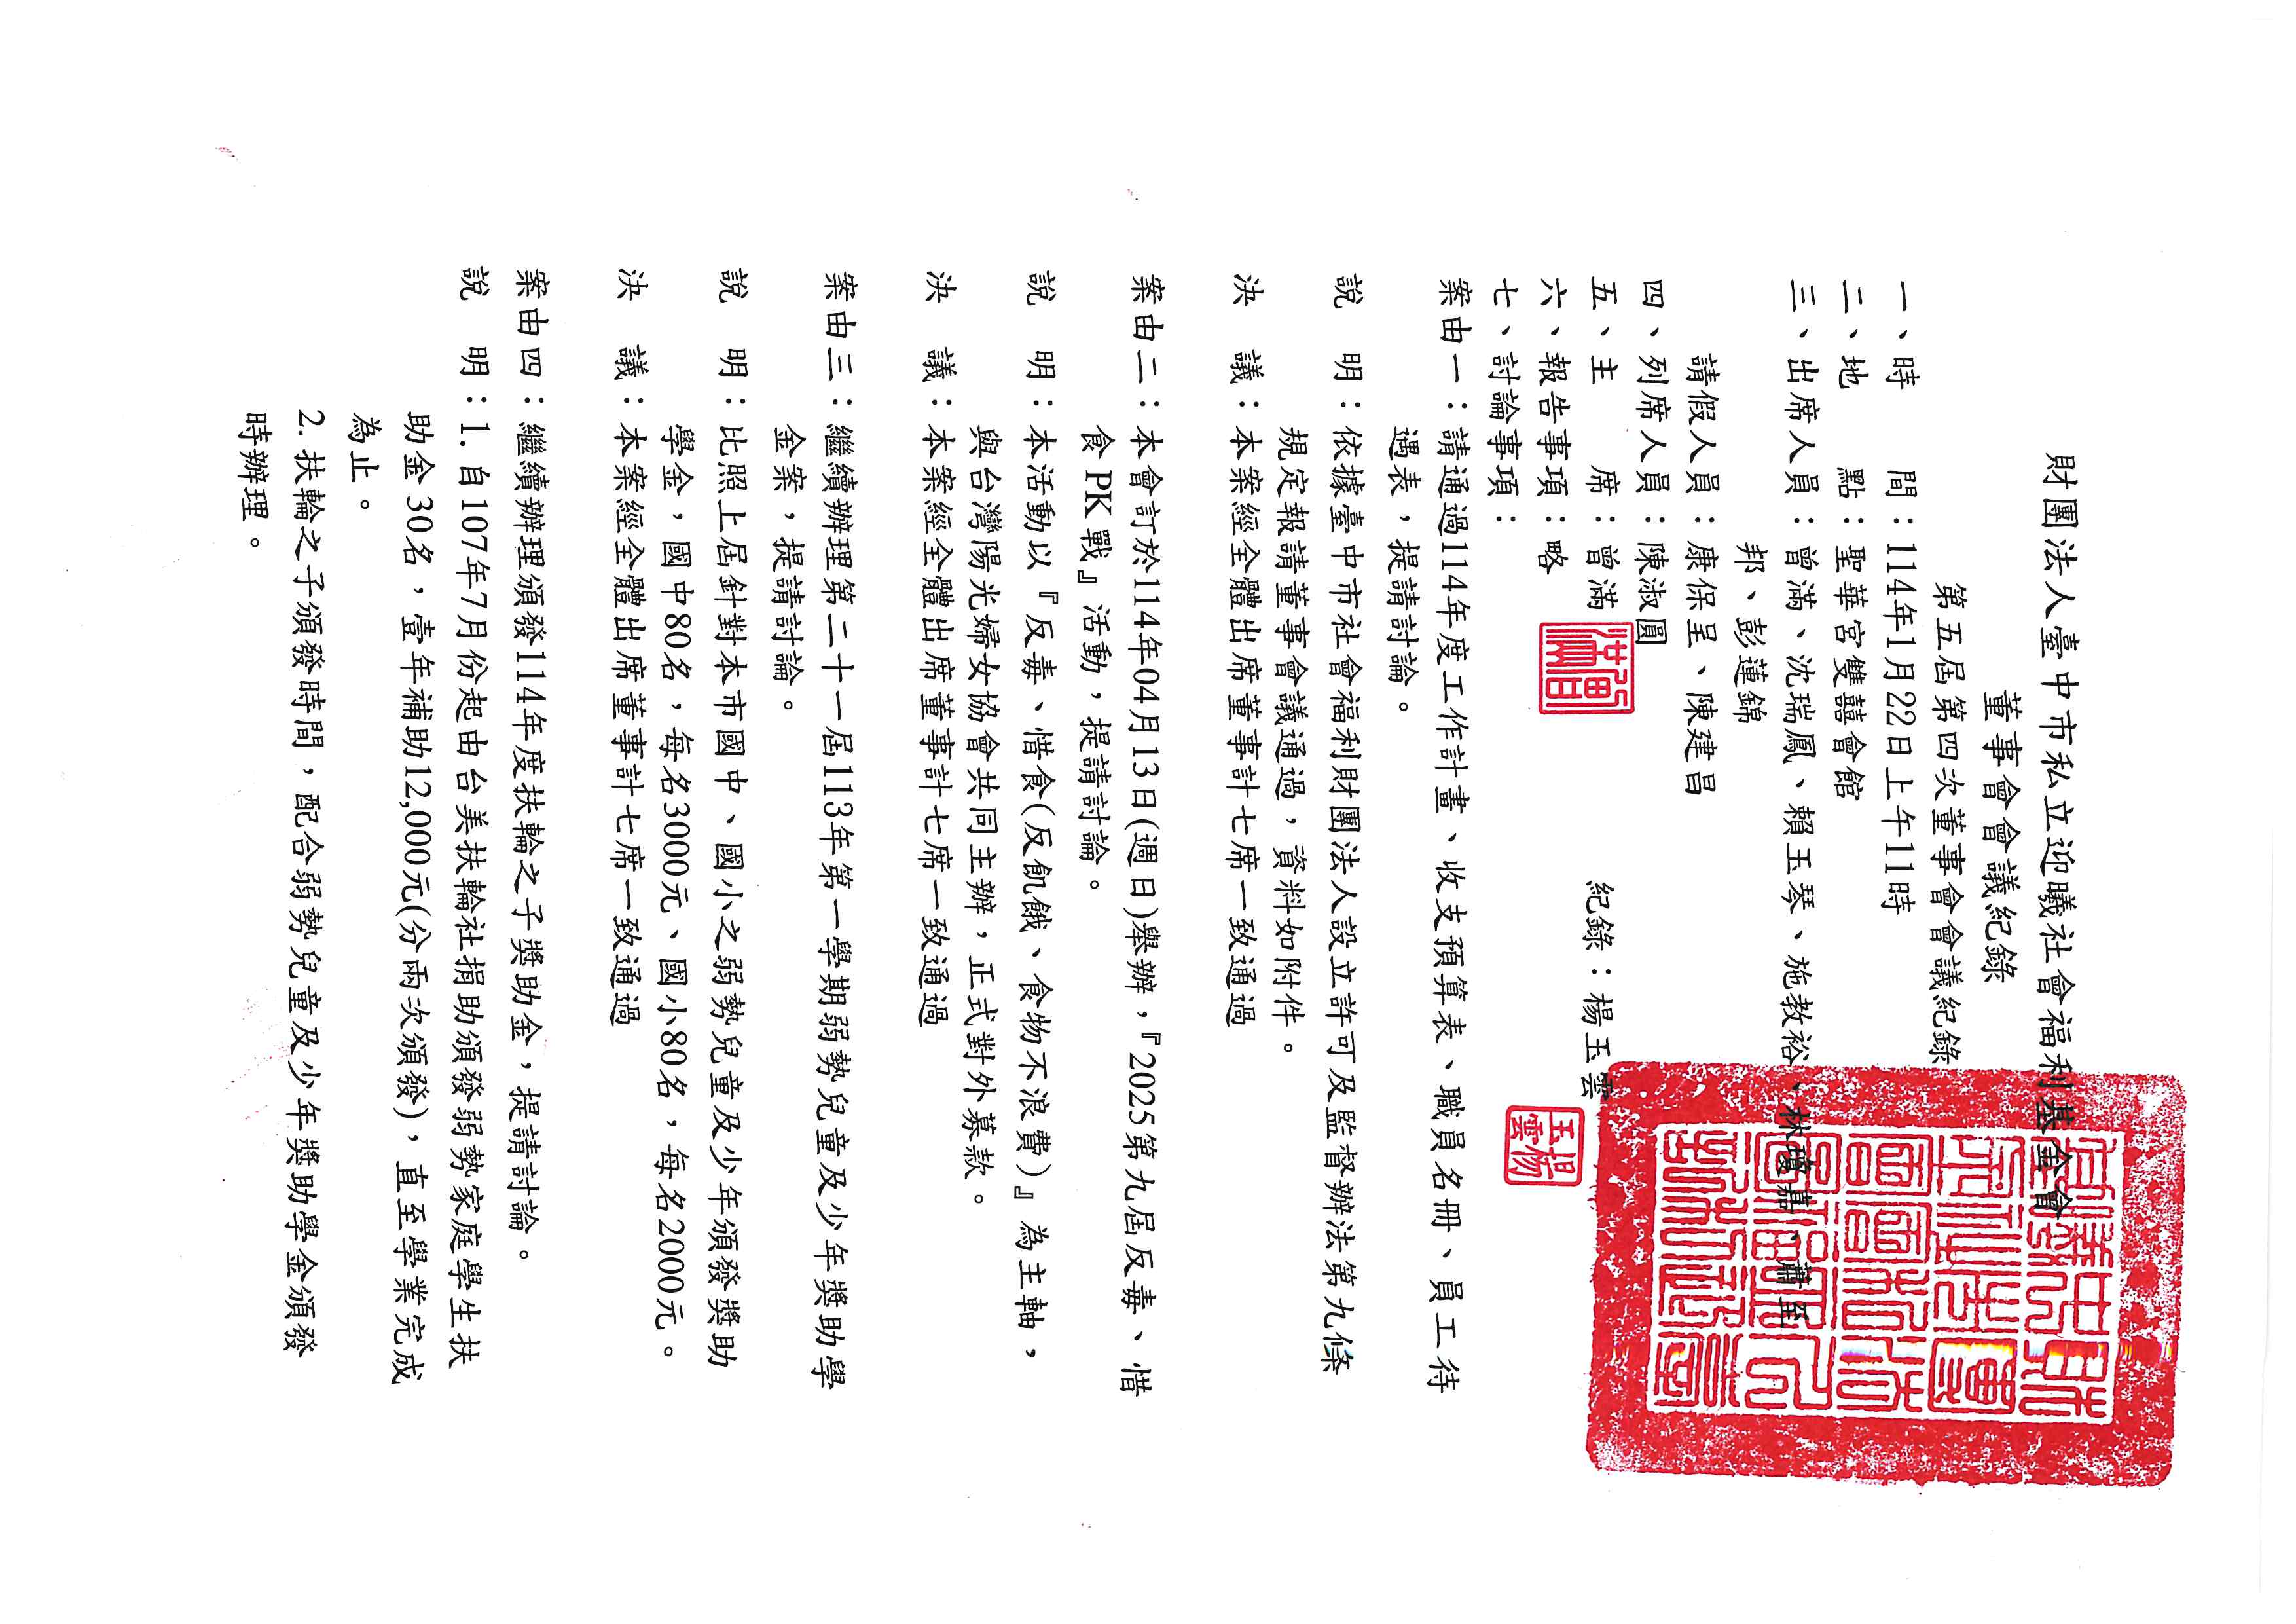 財團法人臺中市私立迎曦社會福利基金會
董事會會議紀錄
第五屆第四次董事會會議紀錄
一、時　　間：114年1月22日上午11時
二、地　　點：聖華宮雙囍會館
三、出席人員：曾滿、沈瑞鳳、賴玉琴、施教裕、林瓊嘉、蕭至
邦、彭蓮錦
請假人員：康保呈、陳建昌
四、列席人員：陳淑圓
五、主　　席：曾滿　　紀錄：楊玉雲
六、報告事項：略
七、討論事項：
案由一：請通過114年度工作計畫、收支預算表、職員名冊、員工待
遇表，提請討論。
說　明：依據臺中市社會福利財團法人設立許可及監督辦法第九條
規定報請董事會議通過，資料如附件。
決　議：本案經全體出席董事計七席一致通過
案由二：本會訂於114年04月13日(週日)舉辦，『2025第九屆反毒、惜
食PK戰』活動，提請討論。
說　明：本活動以『反毒、惜食(反飢餓、食物不浪費)』為主軸，
與台灣陽光婦女協會共同主辦，正式對外募款。
決　議：本案經全體出席董事計七席一致通過
案由三：繼續辦理第二十一屆113年第一學期弱勢兒童及少年獎助學
金案，提請討論。
說　明：比照上屆針對本市國中、國小之弱勢兒童及少年頒發獎助
學金，國中80名，每名3000元、國小80名，每名2000元。
決　議：本案經全體出席董事計七席一致通過
案由四：繼續辦理頒發114年度扶輪之子獎助金，提請討論。
說　明：1.自107年7月份起由台美扶輪社捐助頒發弱勢家庭學生扶
助金30名，壹年補助12,000元(分兩次頒發)，直至學業完成
為止。
2.扶輪之子頒發時間，配合弱勢兒童及少年獎助學金頒發
時辦理。
楊玉雲